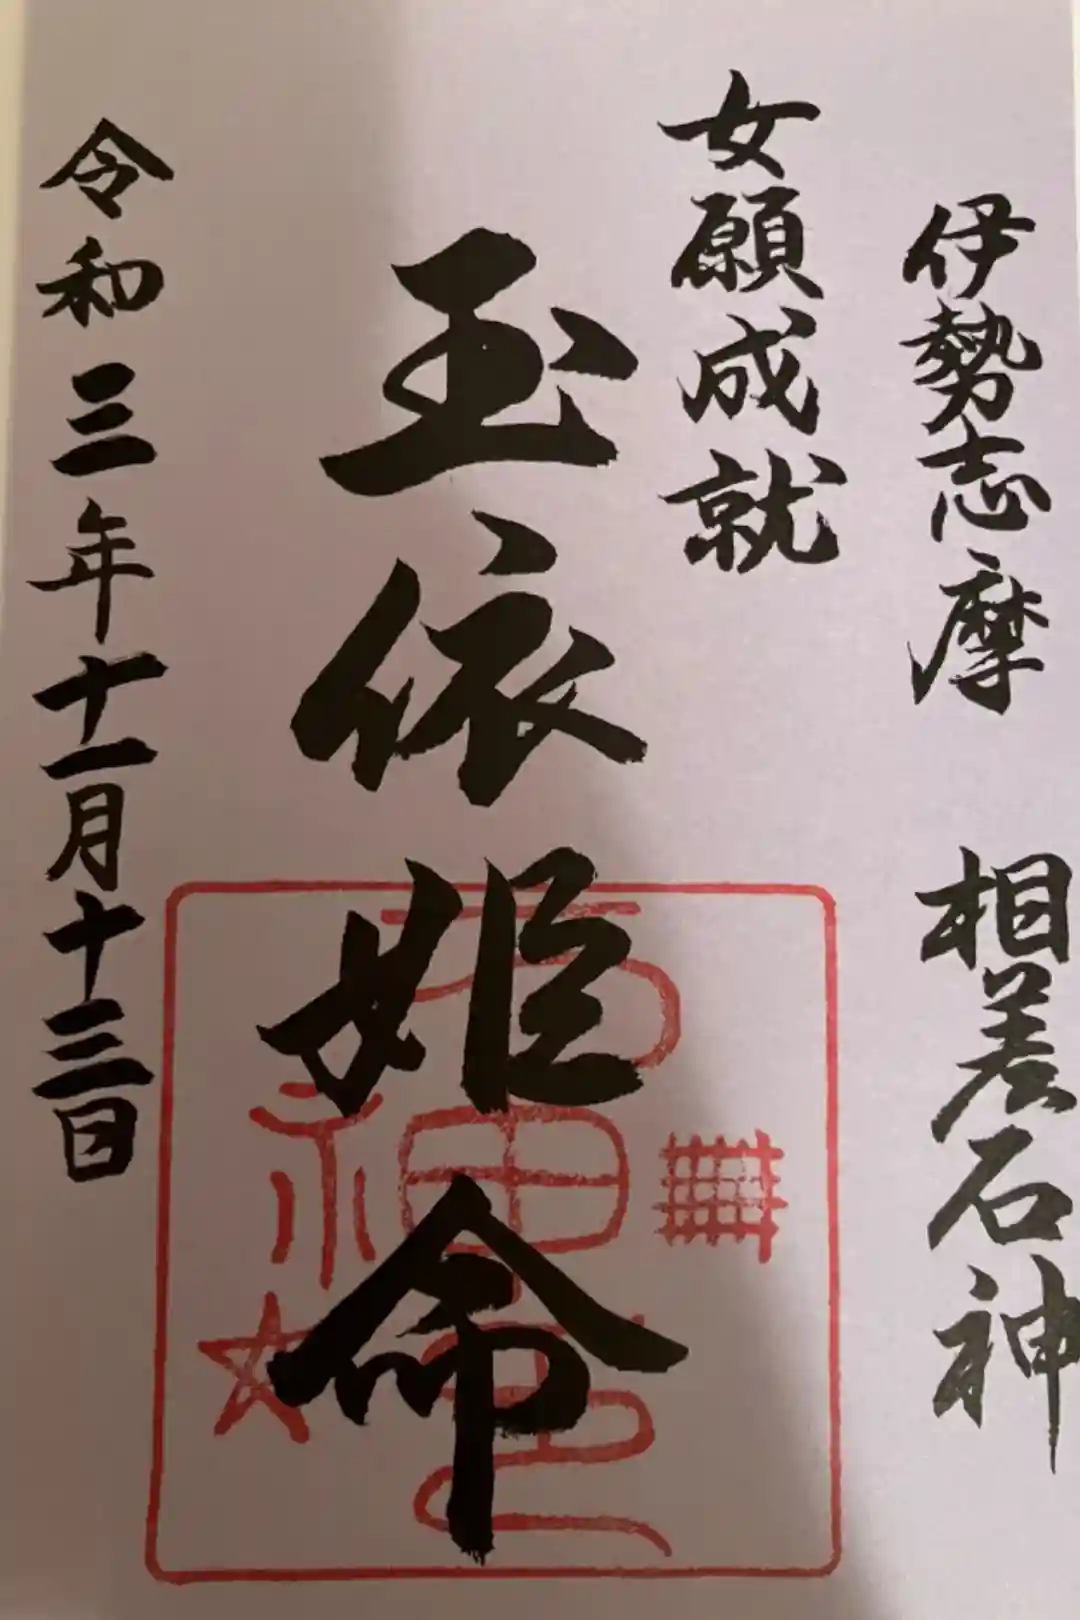 伊勢志摩 相差石神
女願成就
玉依姫命
令和三年十一月十三日
石神